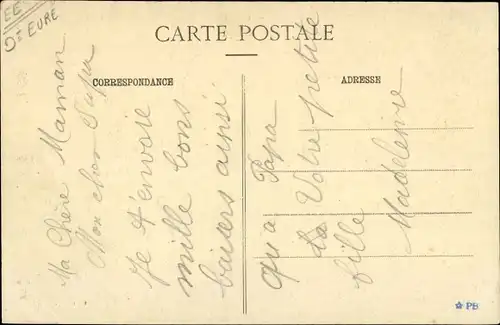 EE
Dt EURE
CARTE POSTALE
CORRESPONDANCE
ADRESSE
Ma Chère Maman
Mon cher Papa
Je t'envoie
mille bons
baisers ainsi
qu'a Papa
La Votre petite
fille
Madeleine
☆ PB